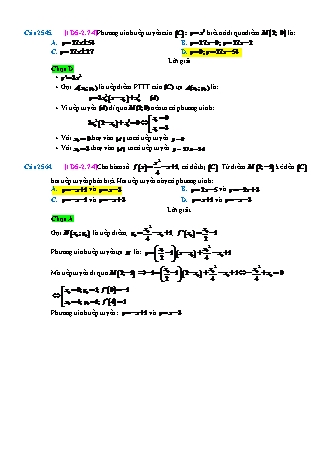 Câu 2545. [1D5-2.7-4] Phương trình tiếp tuyến của (C): y = x³ biết nó đi qua điểm M(2; 0) là:
A. y = 27x ± 54. B. y = 27x − 9; y = 27x − 2.
C. y = 27x ± 27. D. y = 0; y = 27x − 54.
Lời giải
Chọn D
• y' = 3x²
• Gọi A(x₀; y₀) là tiếp điểm. PTTT của (C) tại A(x₀; y₀) là:
y = 3x₀²(x − x₀) + x₀³ (d)
• Vì tiếp tuyến (d) đi qua M(2; 0) nên ta có phương trình:
3x₀²(2 − x₀) + x₀³ = 0 ⇔ [x₀ = 0
x₀ = 3
• Với x₀ = 0 thay vào (d) ta có tiếp tuyến y = 0
• Với x₀ = 3 thay vào (d) ta có tiếp tuyến y = 27x − 54
Câu 2564. [1D5-2.7-4] Cho hàm số f(x) = x²/4 − x + 1, có đồ thị (C). Từ điểm M(2; −1) kẻ đến (C)
hai tiếp tuyến phân biệt. Hai tiếp tuyến này có phương trình:
A. y = −x + 1 và y = x − 3. B. y = 2x − 5 và y = −2x + 3.
C. y = −x − 1 và y = −x + 3. D. y = x + 1 và y = −x − 3.
Lời giải
Chọn A
Gọi N(x₀; y₀) là tiếp điểm; y₀ = x₀²/4 − x₀ + 1; f'(x₀) = x₀/2 − 1
Phương trình tiếp tuyến tại N là: y = (x₀/2 − 1)(x − x₀) + x₀²/4 − x₀ + 1
Mà tiếp tuyến đi qua M(2; −1) ⇒ −1 = (x₀/2 − 1)(2 − x₀) + x₀²/4 − x₀ + 1 ⇔ −x₀²/4 + x₀ = 0
⇔ [x₀ = 0; y₀ = 1; f'(0) = −1
x₀ = 4; y₀ = 1; f'(4) = 1
Phương trình tiếp tuyến: y = −x + 1 và y = x − 3.